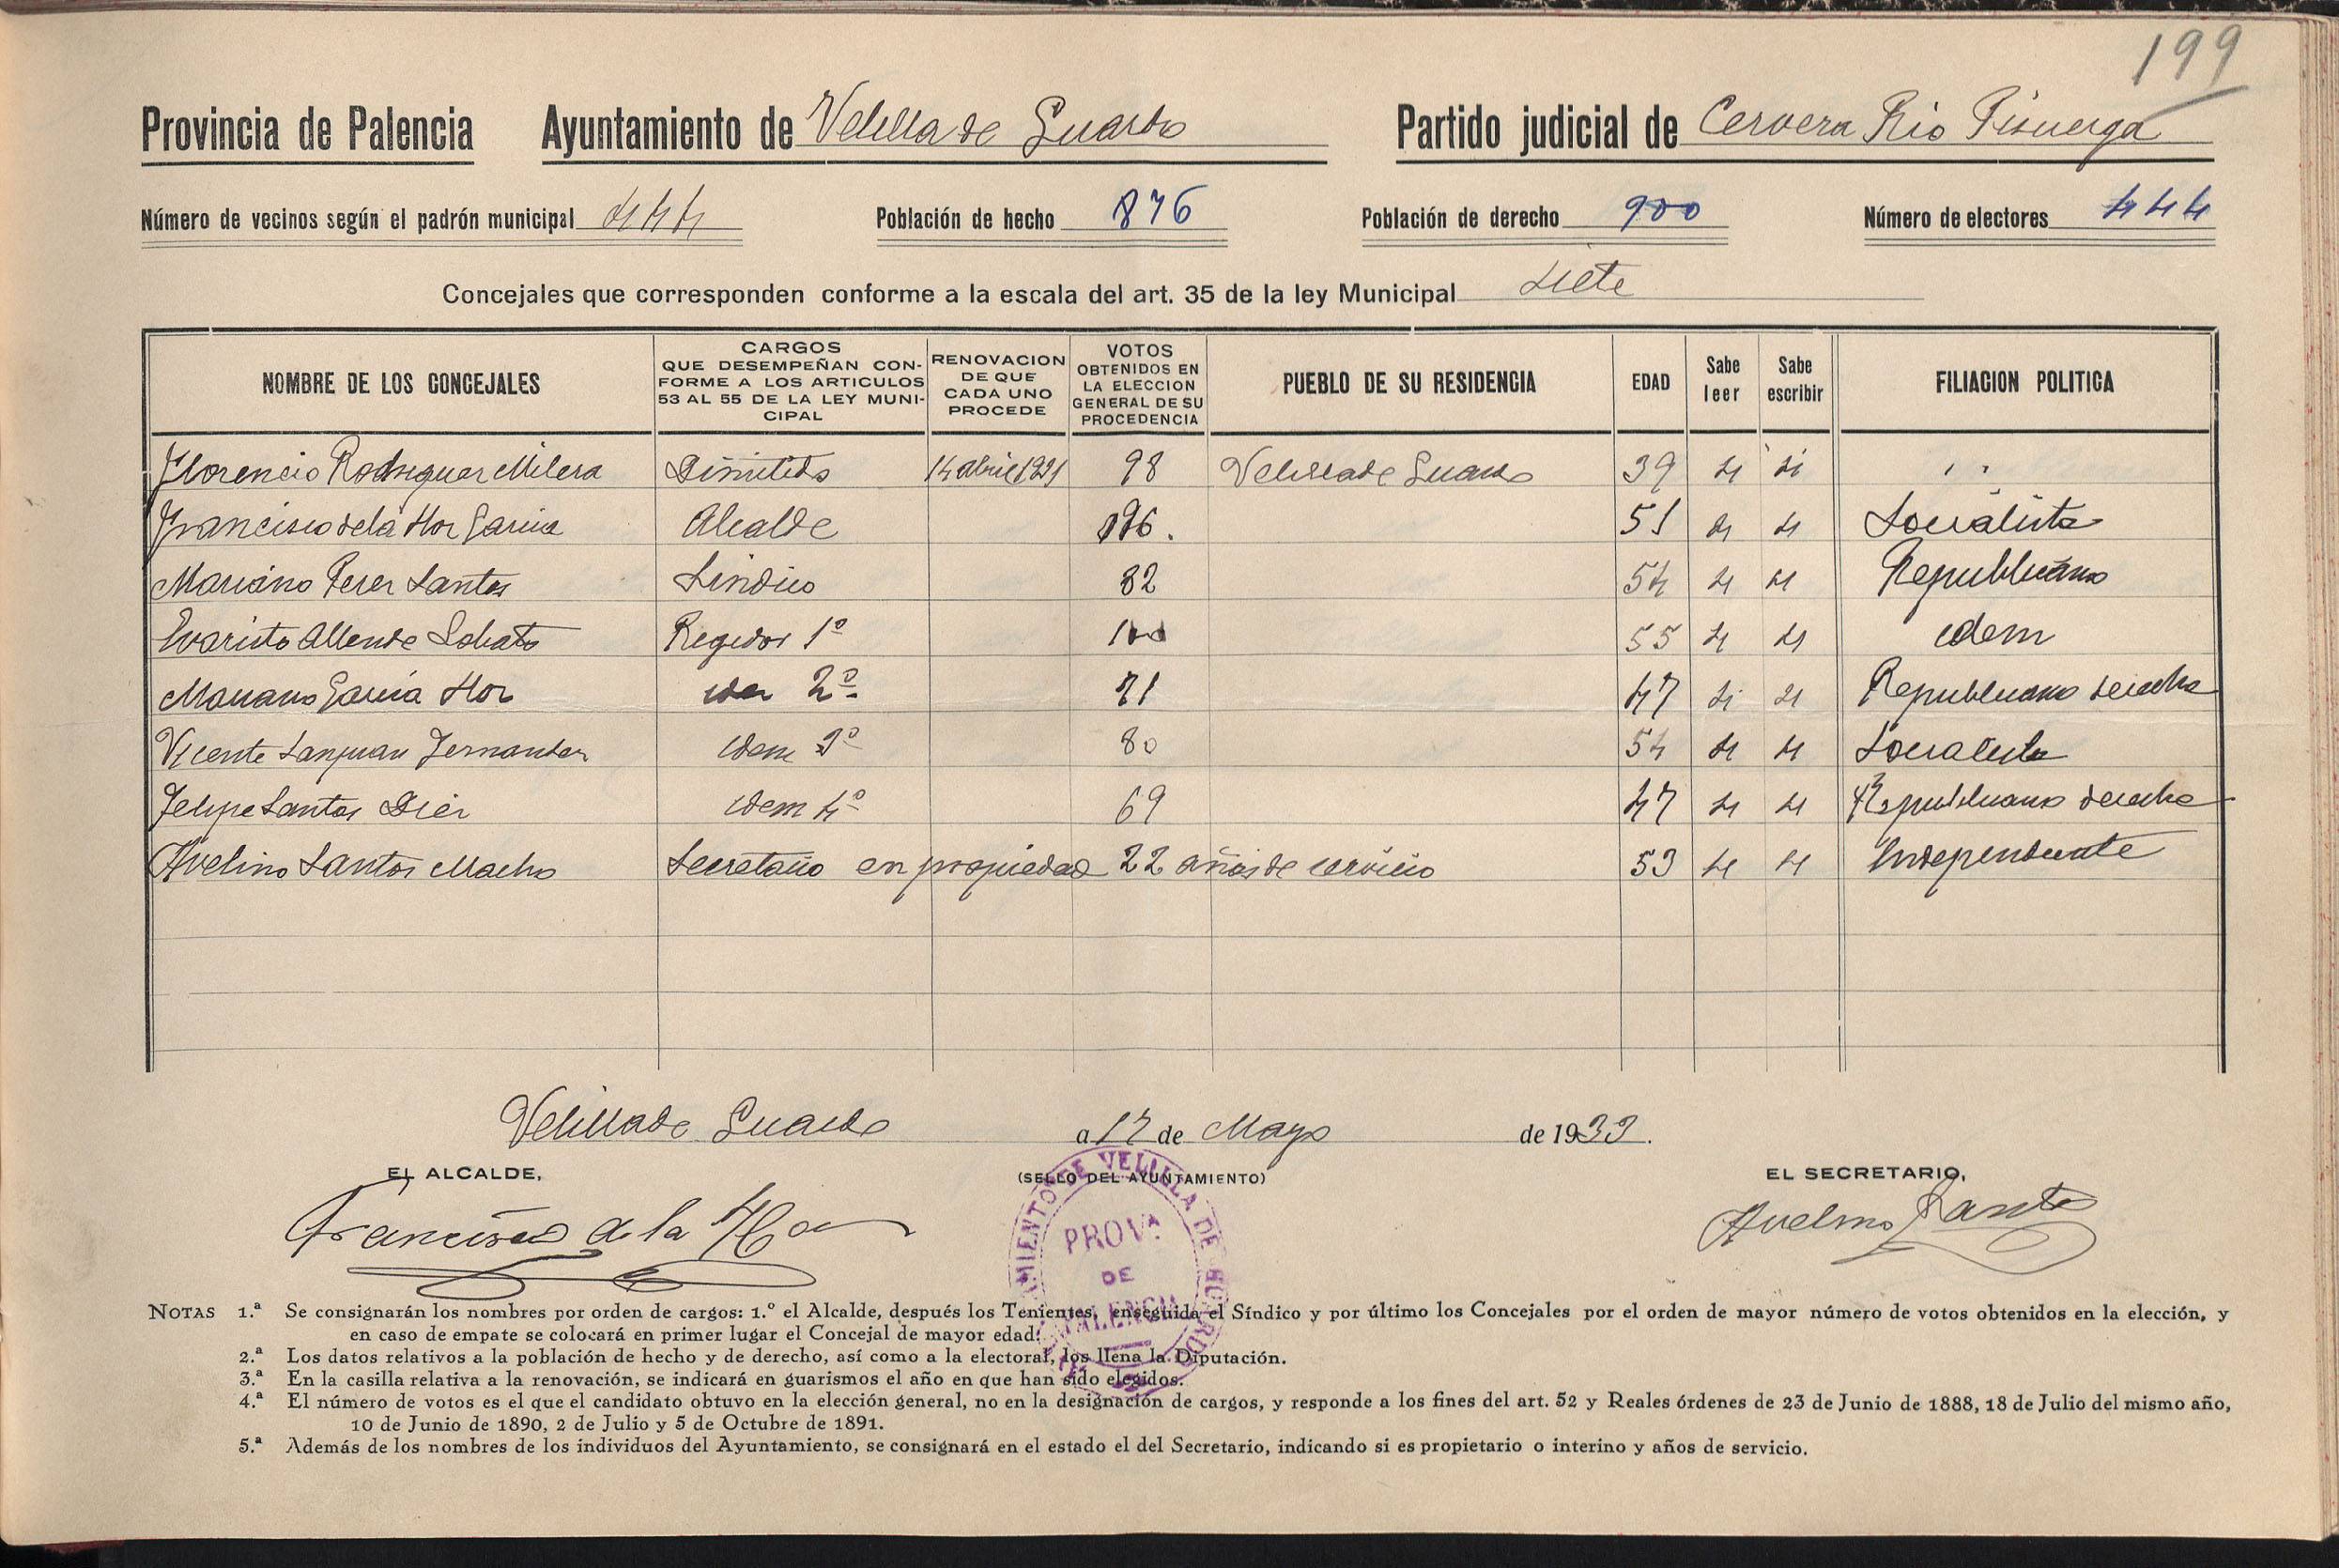 199
Provincia de Palencia Ayuntamiento de Velilla de Guardo Partido judicial de Cervera Rio Pisuerga
Número de vecinos según el padrón municipal 444 Población de hecho 876 Población de derecho 900 Número de electores 444
Concejales que corresponden conforme a la escala del art. 35 de la ley Municipal siete
NOMBRE DE LOS CONCEJALES CARGOS QUE DESEMPEÑAN CONFORME A LOS ARTICULOS 53 AL 55 DE LA LEY MUNICIPAL RENOVACION DE QUE CADA UNO PROCEDE VOTOS OBTENIDOS EN LA ELECCION GENERAL DE SU PROCEDENCIA PUEBLO DE SU RESIDENCIA EDAD Sabe leer Sabe escribir FILIACION POLITICA
Florencio Rodriguez Milera Dimitido 14 abril 1931 98 Velilla de Guardo 39 si si " "
Francisco de la Hoz Garcia Alcalde 51 si si Socialista
Mariano Perez Santos Sindico 82 54 si si Republicano
Evaristo Allende Lobato Regidor 1º 100 55 si si idem
Mariano Garcia Hoz idem 2º 71 47 si si Republicano derecha
Vicente Sanjuan Fernandez idem 3º 80 54 si si Socialista
Felipe Santos Diez idem 4º 69 47 si si Republicano derecha
Avelino Santos Macho Secretario en propiedad 22 años de servicio 53 si si Independiente
Velilla de Guardo a 17 de Mayo de 1933.
EL ALCALDE, (SELLO DEL AYUNTAMIENTO) EL SECRETARIO,
Francisco de la Hoz Avelino Santos
AYUNTAMIENTO DE VELILLA DE GUARDO
PROVª
DE
PALENCIA
NOTAS 1.ª Se consignarán los nombres por orden de cargos: 1.º el Alcalde, después los Tenientes, enseguida el Síndico y por último los Concejales por el orden de mayor número de votos obtenidos en la elección, y
en caso de empate se colocará en primer lugar el Concejal de mayor edad.
2.ª Los datos relativos a la población de hecho y de derecho, así como a la electoral, los llena la Diputación.
3.ª En la casilla relativa a la renovación, se indicará en guarismos el año en que han sido elegidos.
4.ª El número de votos es el que el candidato obtuvo en la elección general, no en la designación de cargos, y responde a los fines del art. 52 y Reales órdenes de 23 de Junio de 1888, 18 de Julio del mismo año,
10 de Junio de 1890, 2 de Julio y 5 de Octubre de 1891.
5.ª Además de los nombres de los individuos del Ayuntamiento, se consignará en el estado el del Secretario, indicando si es propietario o interino y años de servicio.